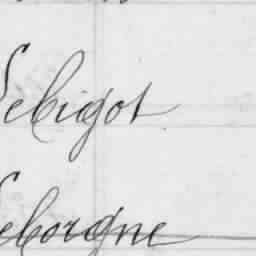 Lebigot
Leborgne